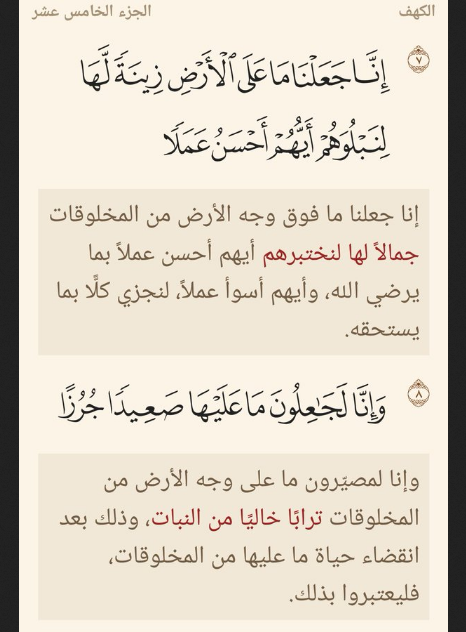 الكهف
الجزء الخامس عشر
٧
إِنَّا جَعَلْنَا مَا عَلَى ٱلْأَرْضِ زِينَةً لَّهَا
لِنَبْلُوَهُمْ أَيُّهُمْ أَحْسَنُ عَمَلًا
إنا جعلنا ما فوق وجه الأرض من المخلوقات
جمالاً لها لنختبرهم أيهم أحسن عملاً بما
يرضي الله، وأيهم أسوأ عملاً، لنجزي كلًّا بما
يستحقه.
٨
وَإِنَّا لَجَٰعِلُونَ مَا عَلَيْهَا صَعِيدًا جُرُزًا
وإنا لمصيّرون ما على وجه الأرض من
المخلوقات ترابًا خاليًا من النبات، وذلك بعد
انقضاء حياة ما عليها من المخلوقات،
فليعتبروا بذلك.